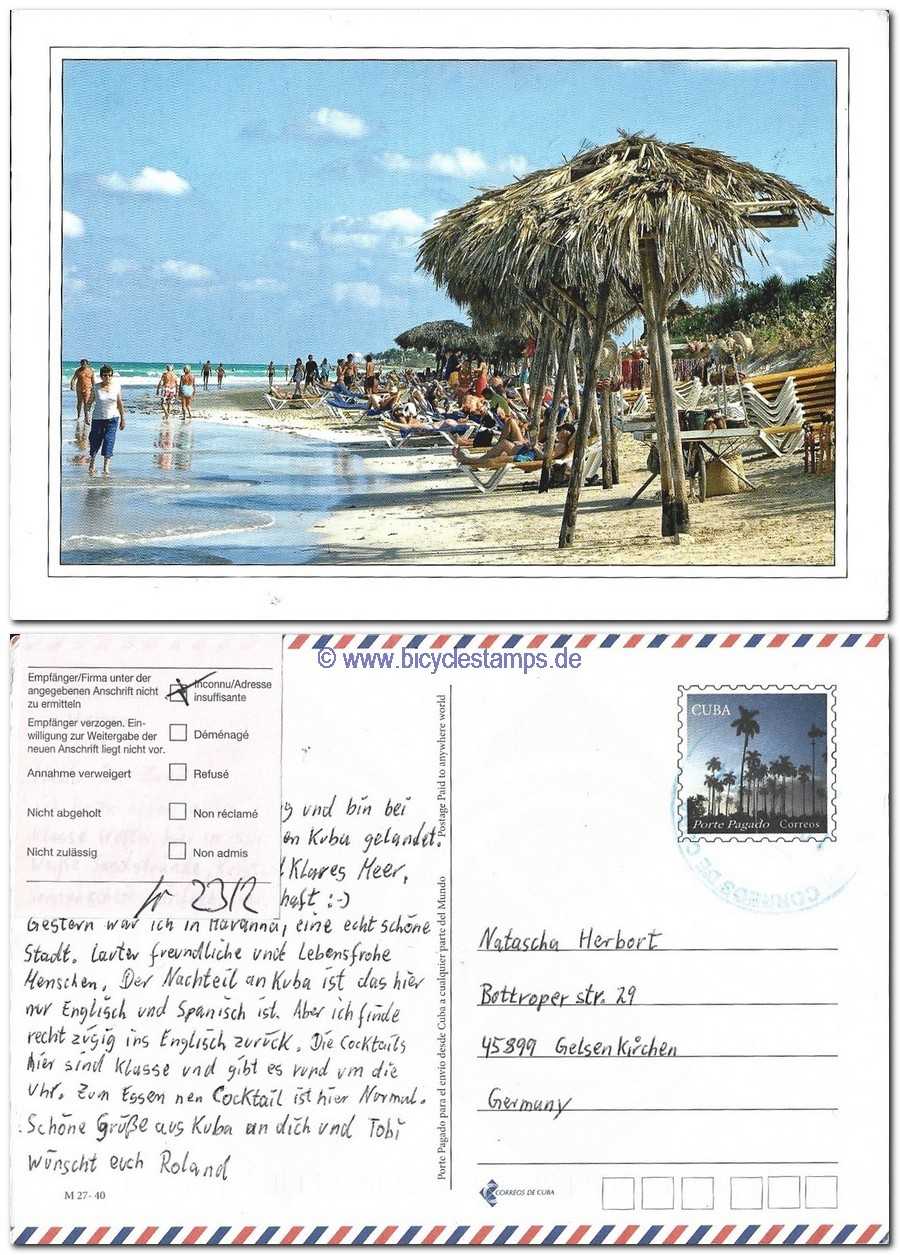 © www.bicyclestamps.de
Empfänger/Firma unter der
angegebenen Anschrift nicht
zu ermitteln
Inconnu/Adresse
insuffisante
Empfänger verzogen. Ein-
willigung zur Weitergabe der
neuen Anschrift liegt nicht vor.
Déménagé
Annahme verweigert
Refusé
Nicht abgeholt
Non réclamé
Nicht zulässig
Non admis
2312
und bin bei
en Kuba gelandet.
Klares Meer,
haft :-)
Gestern war ich in Havanna, eine echt schöne
Stadt. Lauter freundliche und Lebensfrohe
Menschen. Der Nachteil an Kuba ist das hier
nur Englisch und Spanisch ist. Aber ich finde
recht zügig ins Englisch zurück. Die Cocktails
hier sind Klasse und gibt es rund um die
Uhr. Zum Essen nen Cocktail ist hier Normal.
Schöne Grüße aus Kuba an dich und Tobi
wünscht euch Roland
M 27- 40
Porte Pagado para el envío desde Cuba a cualquier parte del Mundo
Postage Paid to anywhere world
CUBA
Porte Pagado Correos
CORREOS DE C
Natascha Herbort
Bottroper str. 29
45899 Gelsenkirchen
Germany
CORREOS DE CUBA